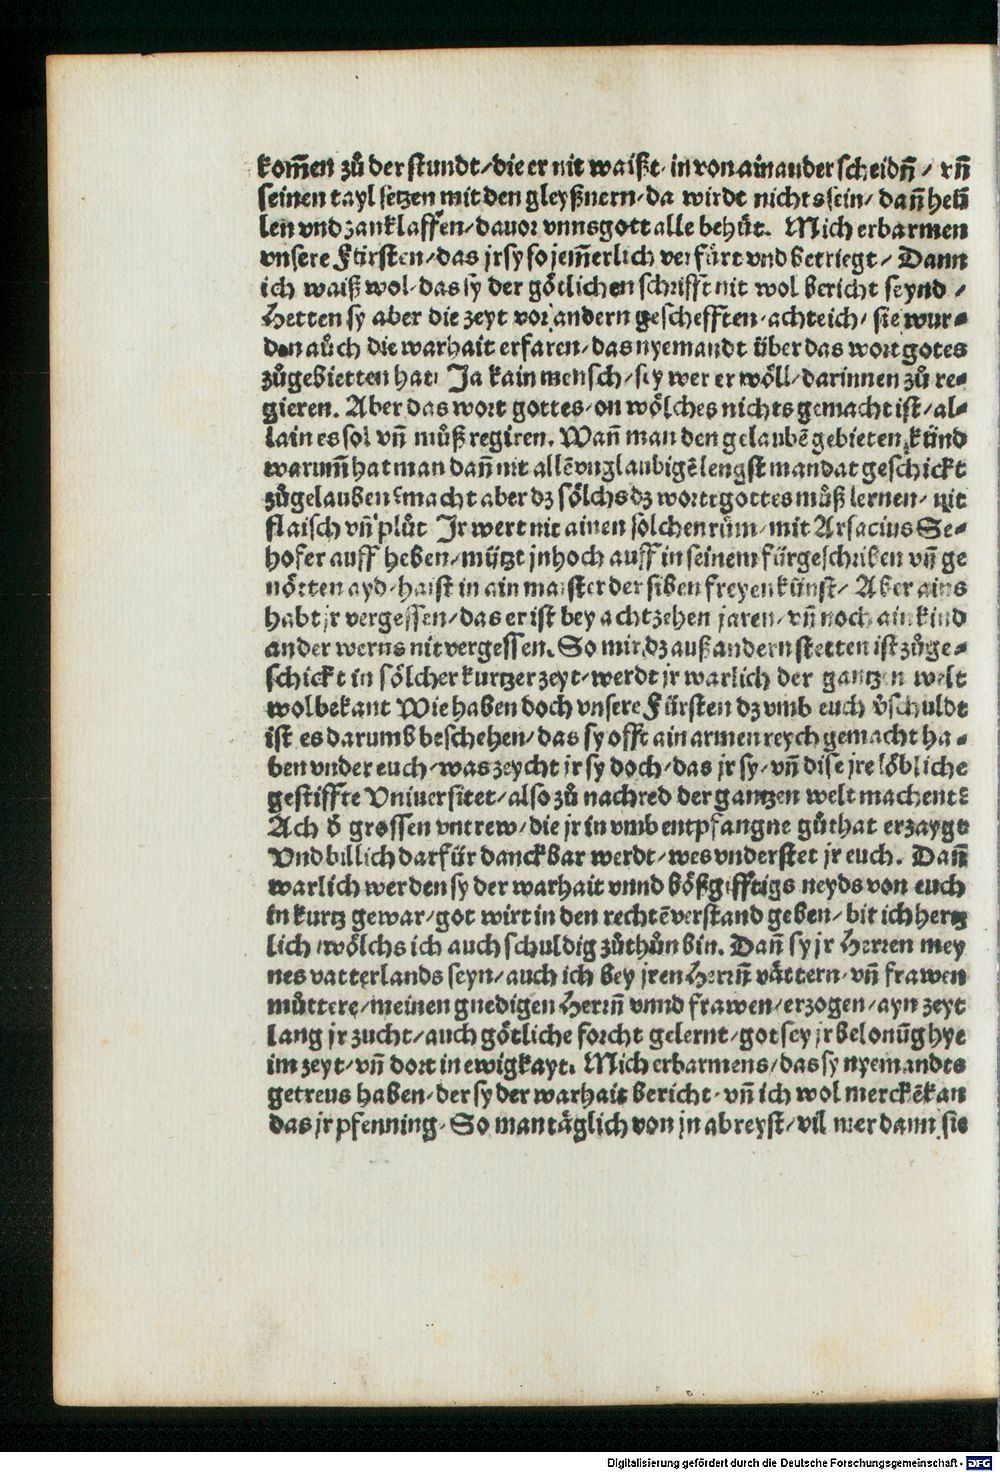 kom̄en zů der stundt/die er nit waißt/in von ainander scheidn̄/ vn̄
seinen tayl setzen mit den gleyßnern/da wirdt nichts sein/ dan̄ heü
len vnd zanklaffen/dauor vnns gott alle behůt. Mich erbarmen
vnsere Fürsten/das jr sy so jem̄erlich verfürt vnd betriegt/ Dann
ich waiß wol/das sy der götlichen schrifft nit wol bericht seynd/
Hetten sy aber die zeyt vor andern geschefften/acht eich/ sie wur=
den aůch die warhait erfaren/das nyemandt über das wort gotes
zůgebietten hat/ Ja kain mensch/sey wer er wöll/darinnen zů re=
gieren. Aber das wort gottes/on wölches nichts gemacht ist/al=
lain es sol vn̄ můß regiren. Wan̄ man den gelaubē gebieten künd
warum̄ hat man dan̄ nit allē vnglaubigē lengst mandat geschickt
zůgelauben? macht aber dz sölchs dz wort gottes můß lernen/ nit
flaisch vn̄ plůt Jr wert nit ainen sölchen rům/mit Arsacius Se=
hofer auff heben/mützt jn hoch auff in seinem fürgeschriben vn̄ ge
nötten ayd/haist in ain maister der siben freyen künst/ Aber ains
habt jr vergessen/das er ist bey achtzehen jaren/vn̄ noch ain kind
ander werns nit vergessen. So mir dz auß andern stetten ist zůge=
schickt in sölcher kurtzer zeyt/werdt jr warlich der gantzen welt
wol bekant Wie haben doch vnsere Fürsten dz vmb euch v̄schuldt
ist es darumb beschehen/das sy offt ain armen reych gemacht ha=
ben vnder euch/was zeycht jr sy doch/das jr sy/vn̄ dise jre löbliche
gestiffte Vniuersitet/also zů nachred der gantzen welt machent?
Ach d̄ grossen vntrew/die jr in vmb entpfangne gůthat erzaygt
Vnd billich darfür danckbar werdt/wes vnderstet jr euch. Dan̄
warlich werden sy der warhait vnnd bößgifftigs neyds von euch
in kurtz gewar/got wirt in den rechtē verstand geben/bit ich hertz
lich/wölchs ich auch schuldig zůthůn bin. Dan̄ sy jr Herren mey
nes vatterlands seyn/auch ich bey jren Herrn̄ vättern/vn̄ frawen
můttere/meinen gnedigen Herrn̄ vnnd frawen/erzogen/ayn zeyt
lang jr zucht/auch götliche forcht gelernt/got sey jr belonūg hye
im zeyt/vn̄ dort in ewigkayt. Mich erbarmens/das sy nyemandts
getreus haben/der sy der warhait bericht/vn̄ ich wol merckē kan
das jr pfenning/So man täglich von jn abreyst/vil mer dann sie
Digitalisierung gefördert durch die Deutsche Forschungsgemeinschaft - DFG